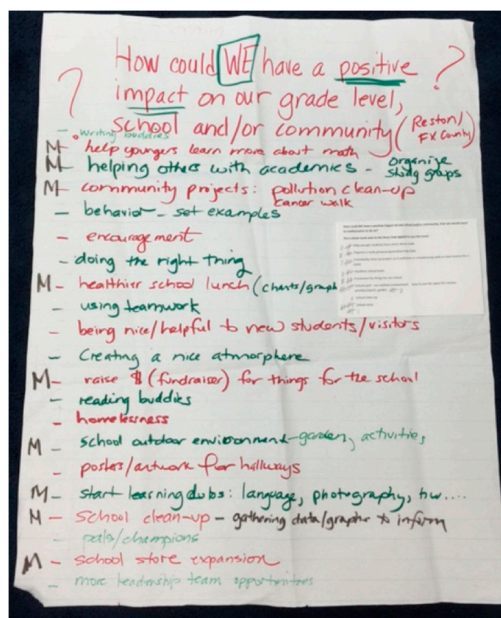 How could WE have a positive
impact on our grade level,
school and/or community (Reston/
FX County)
?
?
- writing buddies
M - help youngers learn more about math
M - helping others with academics - organize
study groups
M - community projects: pollution clean-up
cancer walk
- behavior - set examples
- encouragement
- doing the right thing
M - healthier school lunch (charts/graph
- using teamwork
- being nice/helpful to new students/visitors
- Creating a nice atmorphere
M - raise $ (fundraiser) for things for the school
- reading buddies
- homelessness
M - school outdoor environment - garden, activities
- posters/artwork for hallways
M - start learning clubs: language, photography, hw....
M - School clean-up - gathering data/graphs to inform
- pals/champions
M - school store expansion
- more leadership team opportunities